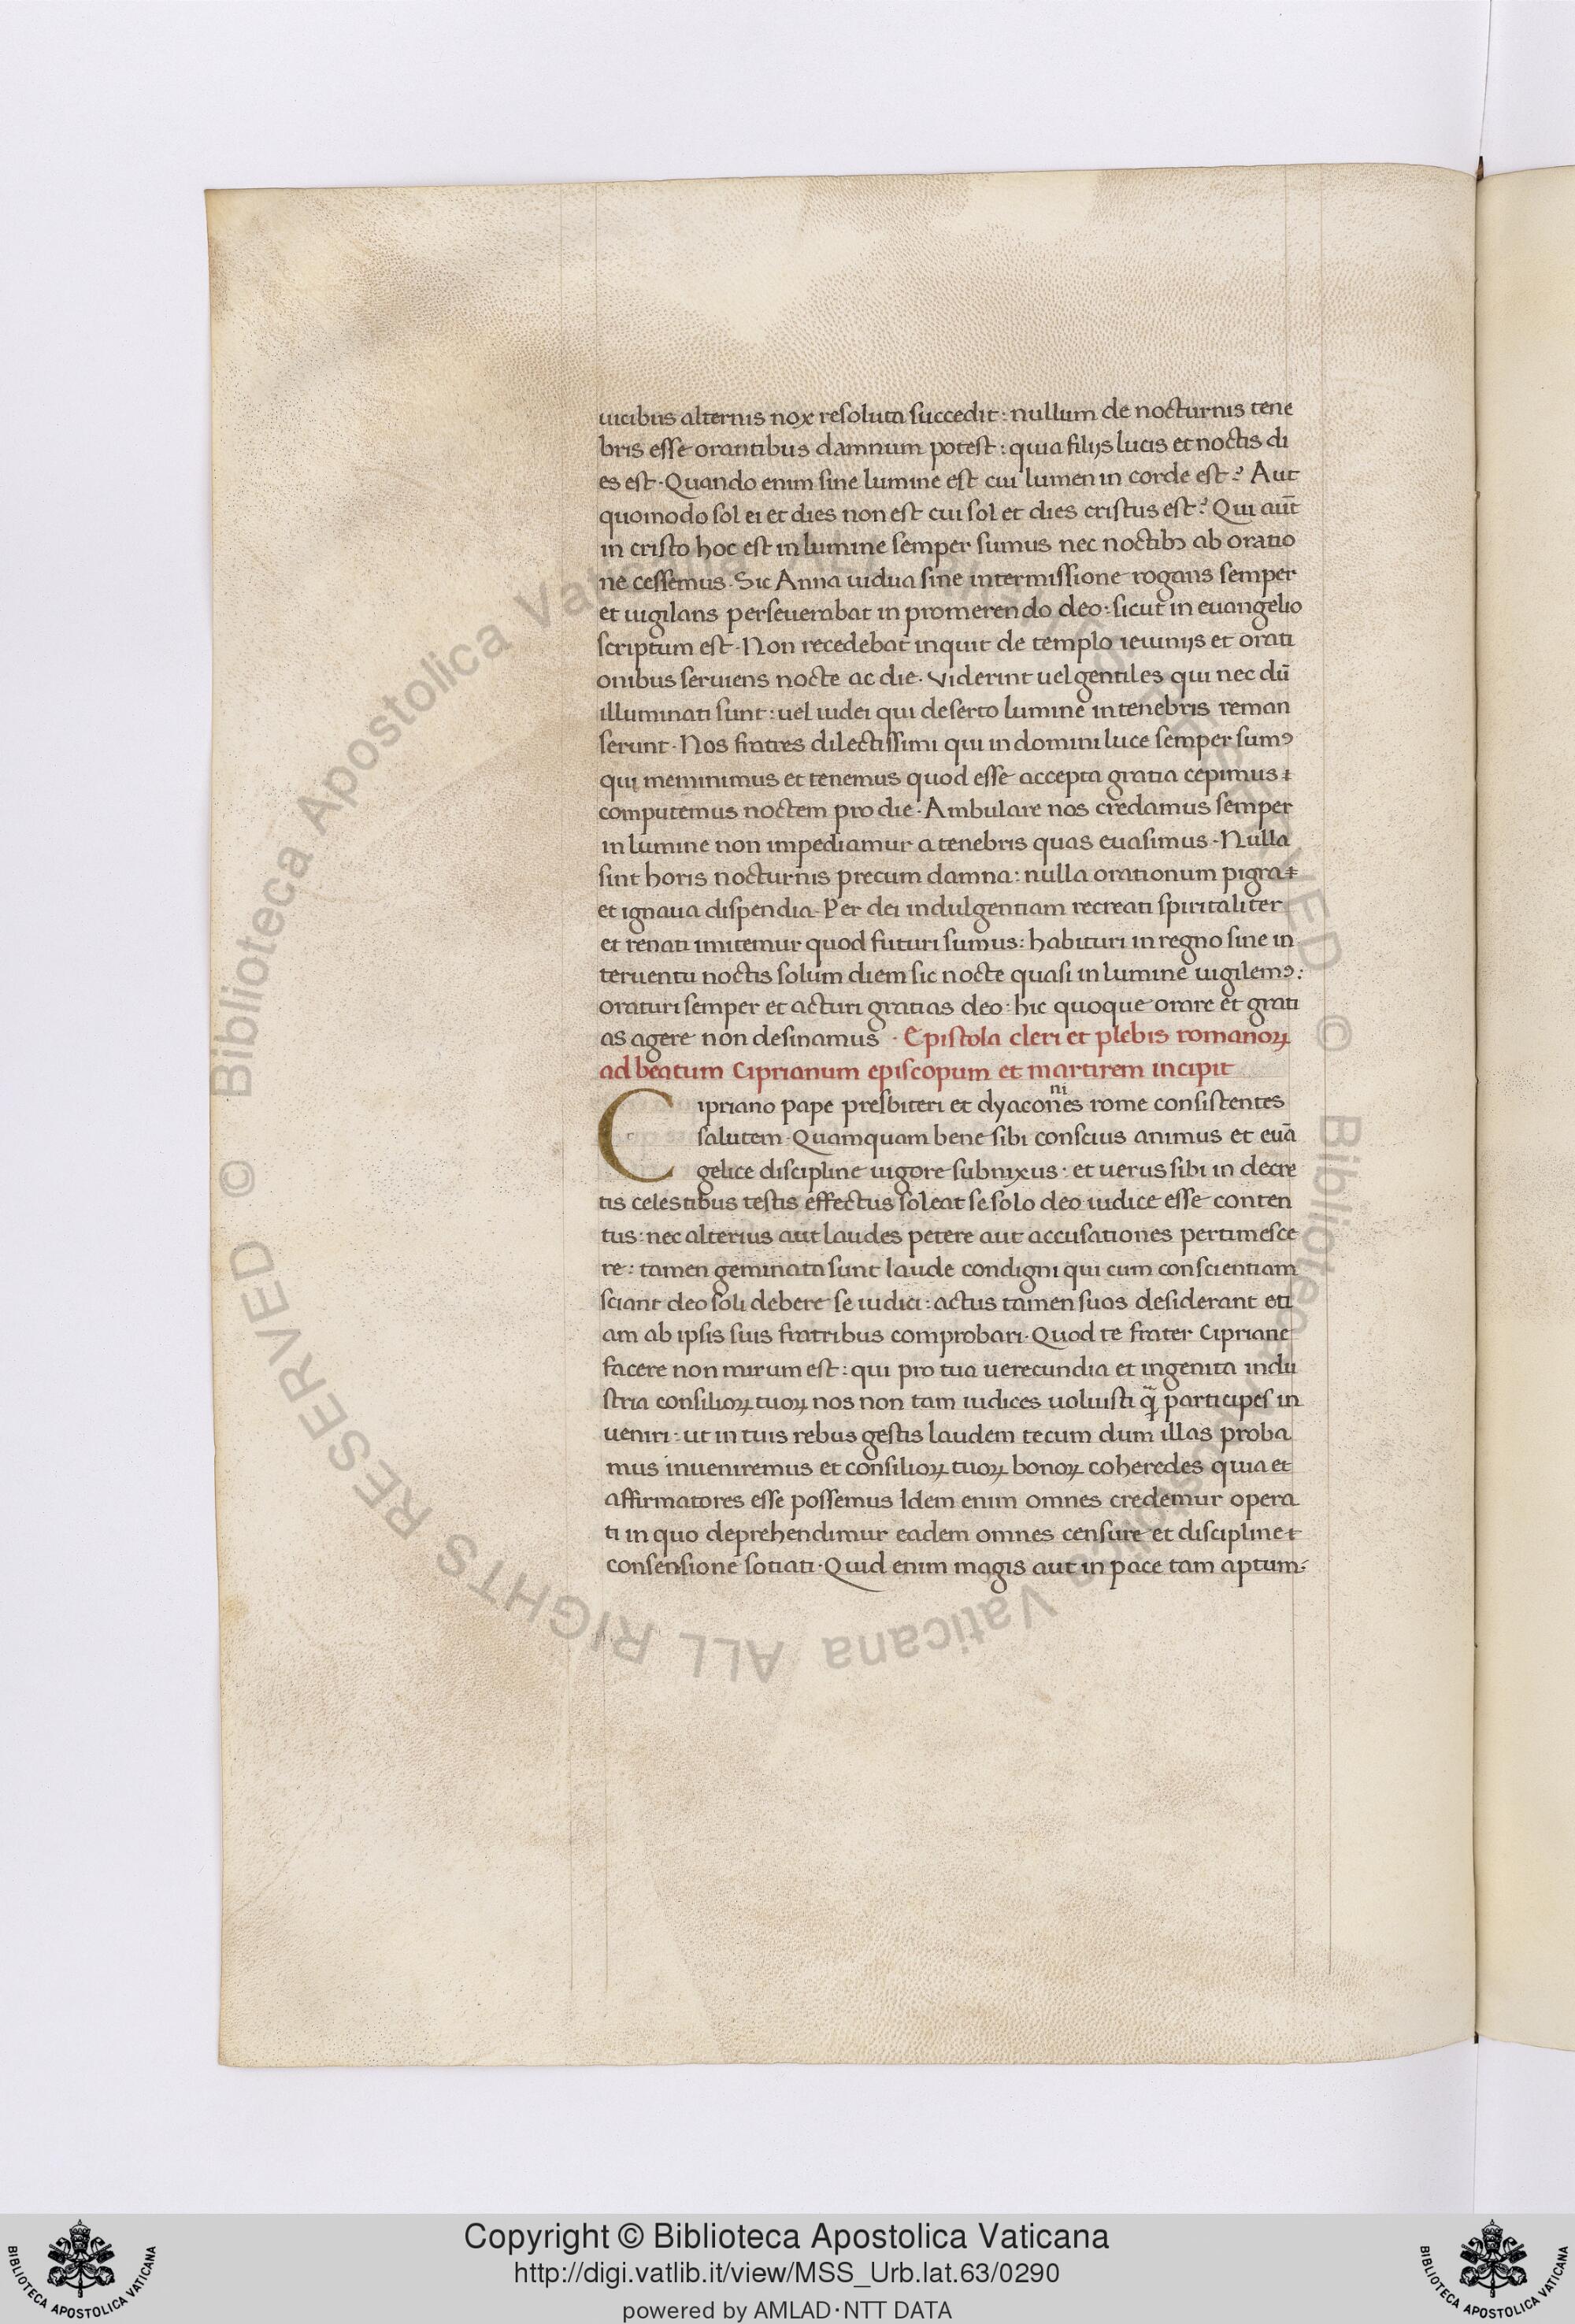 uicibus alternis nox resoluta succedit : nullum de nocturnis tene
bris esse orantibus damnum potest : quia filijs lucis et noctis di
es est · Quando enim sine lumine est cui lumen in corde est ? Aut
quomodo sol ei et dies non est cui sol et dies cristus est ? Qui aūt
in cristo hoc est in lumine semper sumus nec noctibꝫ ab oratio
ne cessemus · Sic Anna uidua sine intermissione rogans semper
et uigilans perseuerabat in promerendo deo : sicut in euangelio
scriptum est · Non recedebat inquit de templo ieiunijs et orati
onibus seruiens nocte ac die · viderint uel gentiles qui nec dū
illuminati sunt : uel iudei qui deserto lumine in tenebris reman
serunt · Nos fratres dilectissimi qui in domini luce semper sumꝰ
qui meminimus et tenemus quod esse accepta gratia cepimus
computemus noctem pro die · Ambulare nos credamus semper
in lumine non impediamur a tenebris quas euasimus · Nulla
sint horis nocturnis precum damna : nulla orationum pigra
et ignaua dispendia · Per dei indulgentiam recreati spiritaliter
et renati imitemur quod futuri sumus : habituri in regno sine in
teruentu noctis solum diem sic nocte quasi in lumine uigilemꝰ :
oraturi semper et acturi gratias deo : hic quoque orare et grati
as agere non desinamus · Epistola cleri et plebis romanoꝝ
ad beatum Ciprianum episcopum et martirem incipit
ni
Cipriano pape presbiteri et dyacones rome consistentes
salutem · Quamquam bene sibi conscius animus et euā
gelice discipline uigore subnixus : et uerus sibi in decre
tis celestibus testis effectus soleat se solo deo iudice esse conten
tus : nec alterius aut laudes petere aut accusationes pertimesce
re : tamen geminata sunt laude condigni qui cum conscientiam
sciant deo soli debere se iudici : actus tamen suos desiderant eti
am ab ipsis suis fratribus comprobari · Quod te frater Cipriane
facere non mirum est : qui pro tua uerecundia et ingenita indu
stria consilioꝝ tuoꝝ nos non tam iudices uoluisti q̃ participes in
ueniri : ut in tuis rebus gestis laudem tecum dum illas proba
mus inueniremus et consilioꝝ tuoꝝ bonoꝝ coheredes quia et
affirmatores esse possemus Idem enim omnes credemur opera
ti in quo deprehendimur eadem omnes censure et discipline
consensione sotiati · Quid enim magis aut in pace tam aptum
© Biblioteca Apostolica Vaticana ALL RIGHTS RESERVED
© Biblioteca Apostolica Vaticana ALL RIGHTS RESERVED
Copyright © Biblioteca Apostolica Vaticana
http://digi.vatlib.it/view/MSS_Urb.lat.63/0290
powered by AMLAD·NTT DATA
BIBLIOTECA APOSTOLICA VATICANA
BIBLIOTECA APOSTOLICA VATICANA